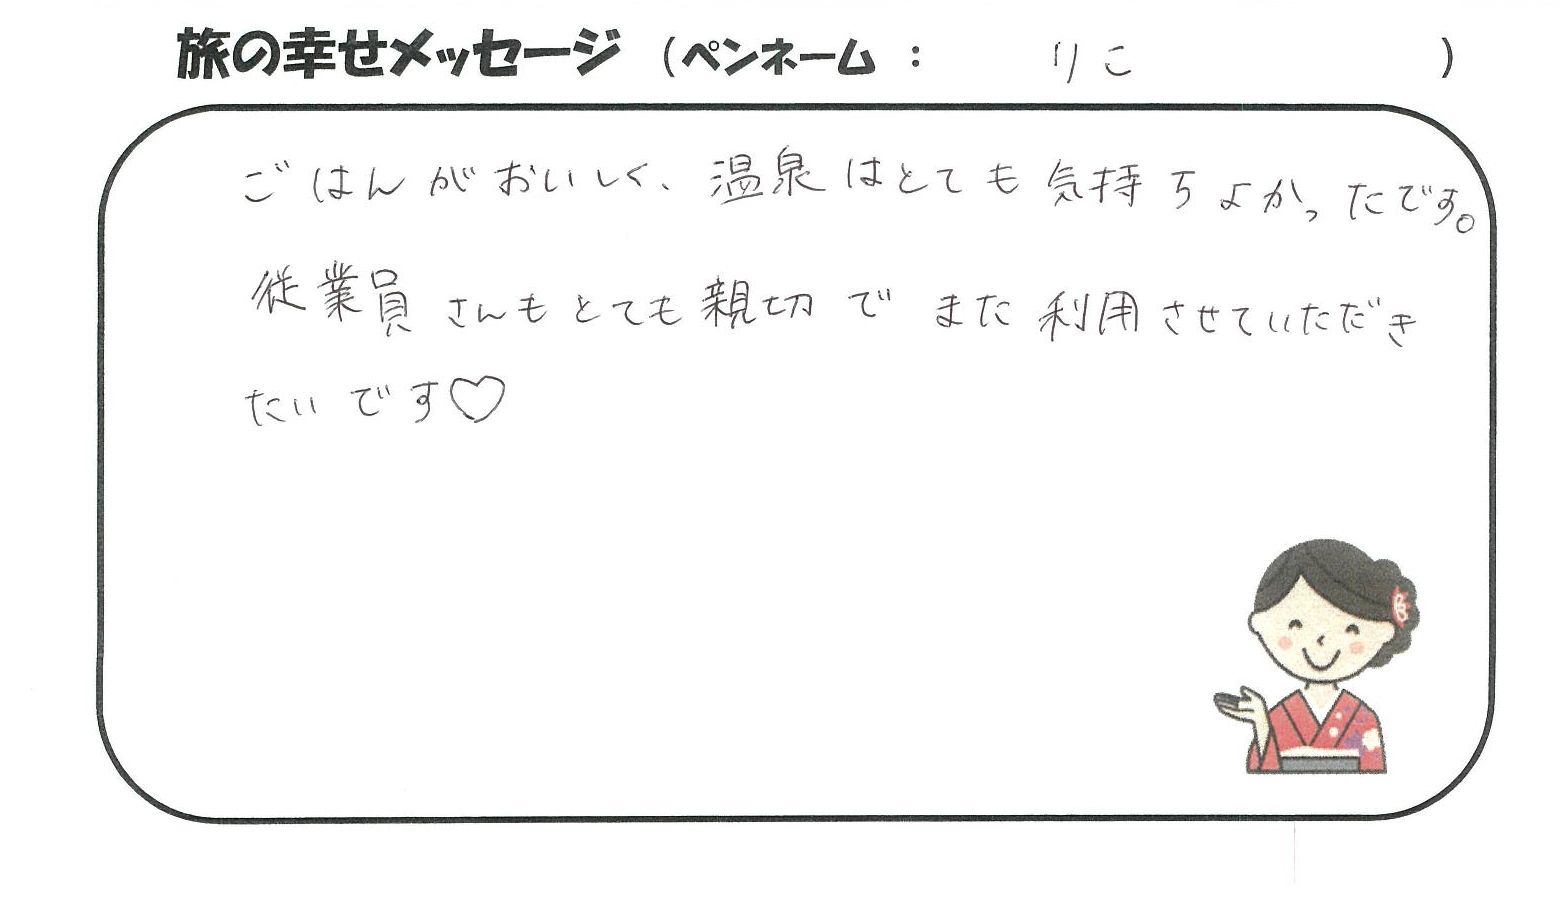 旅の幸せメッセージ (ペンネーム : りこ )
ごはんがおいしく、温泉はとても気持ちよかったです。
従業員さんもとても親切でまた利用させていただき
たいです♡